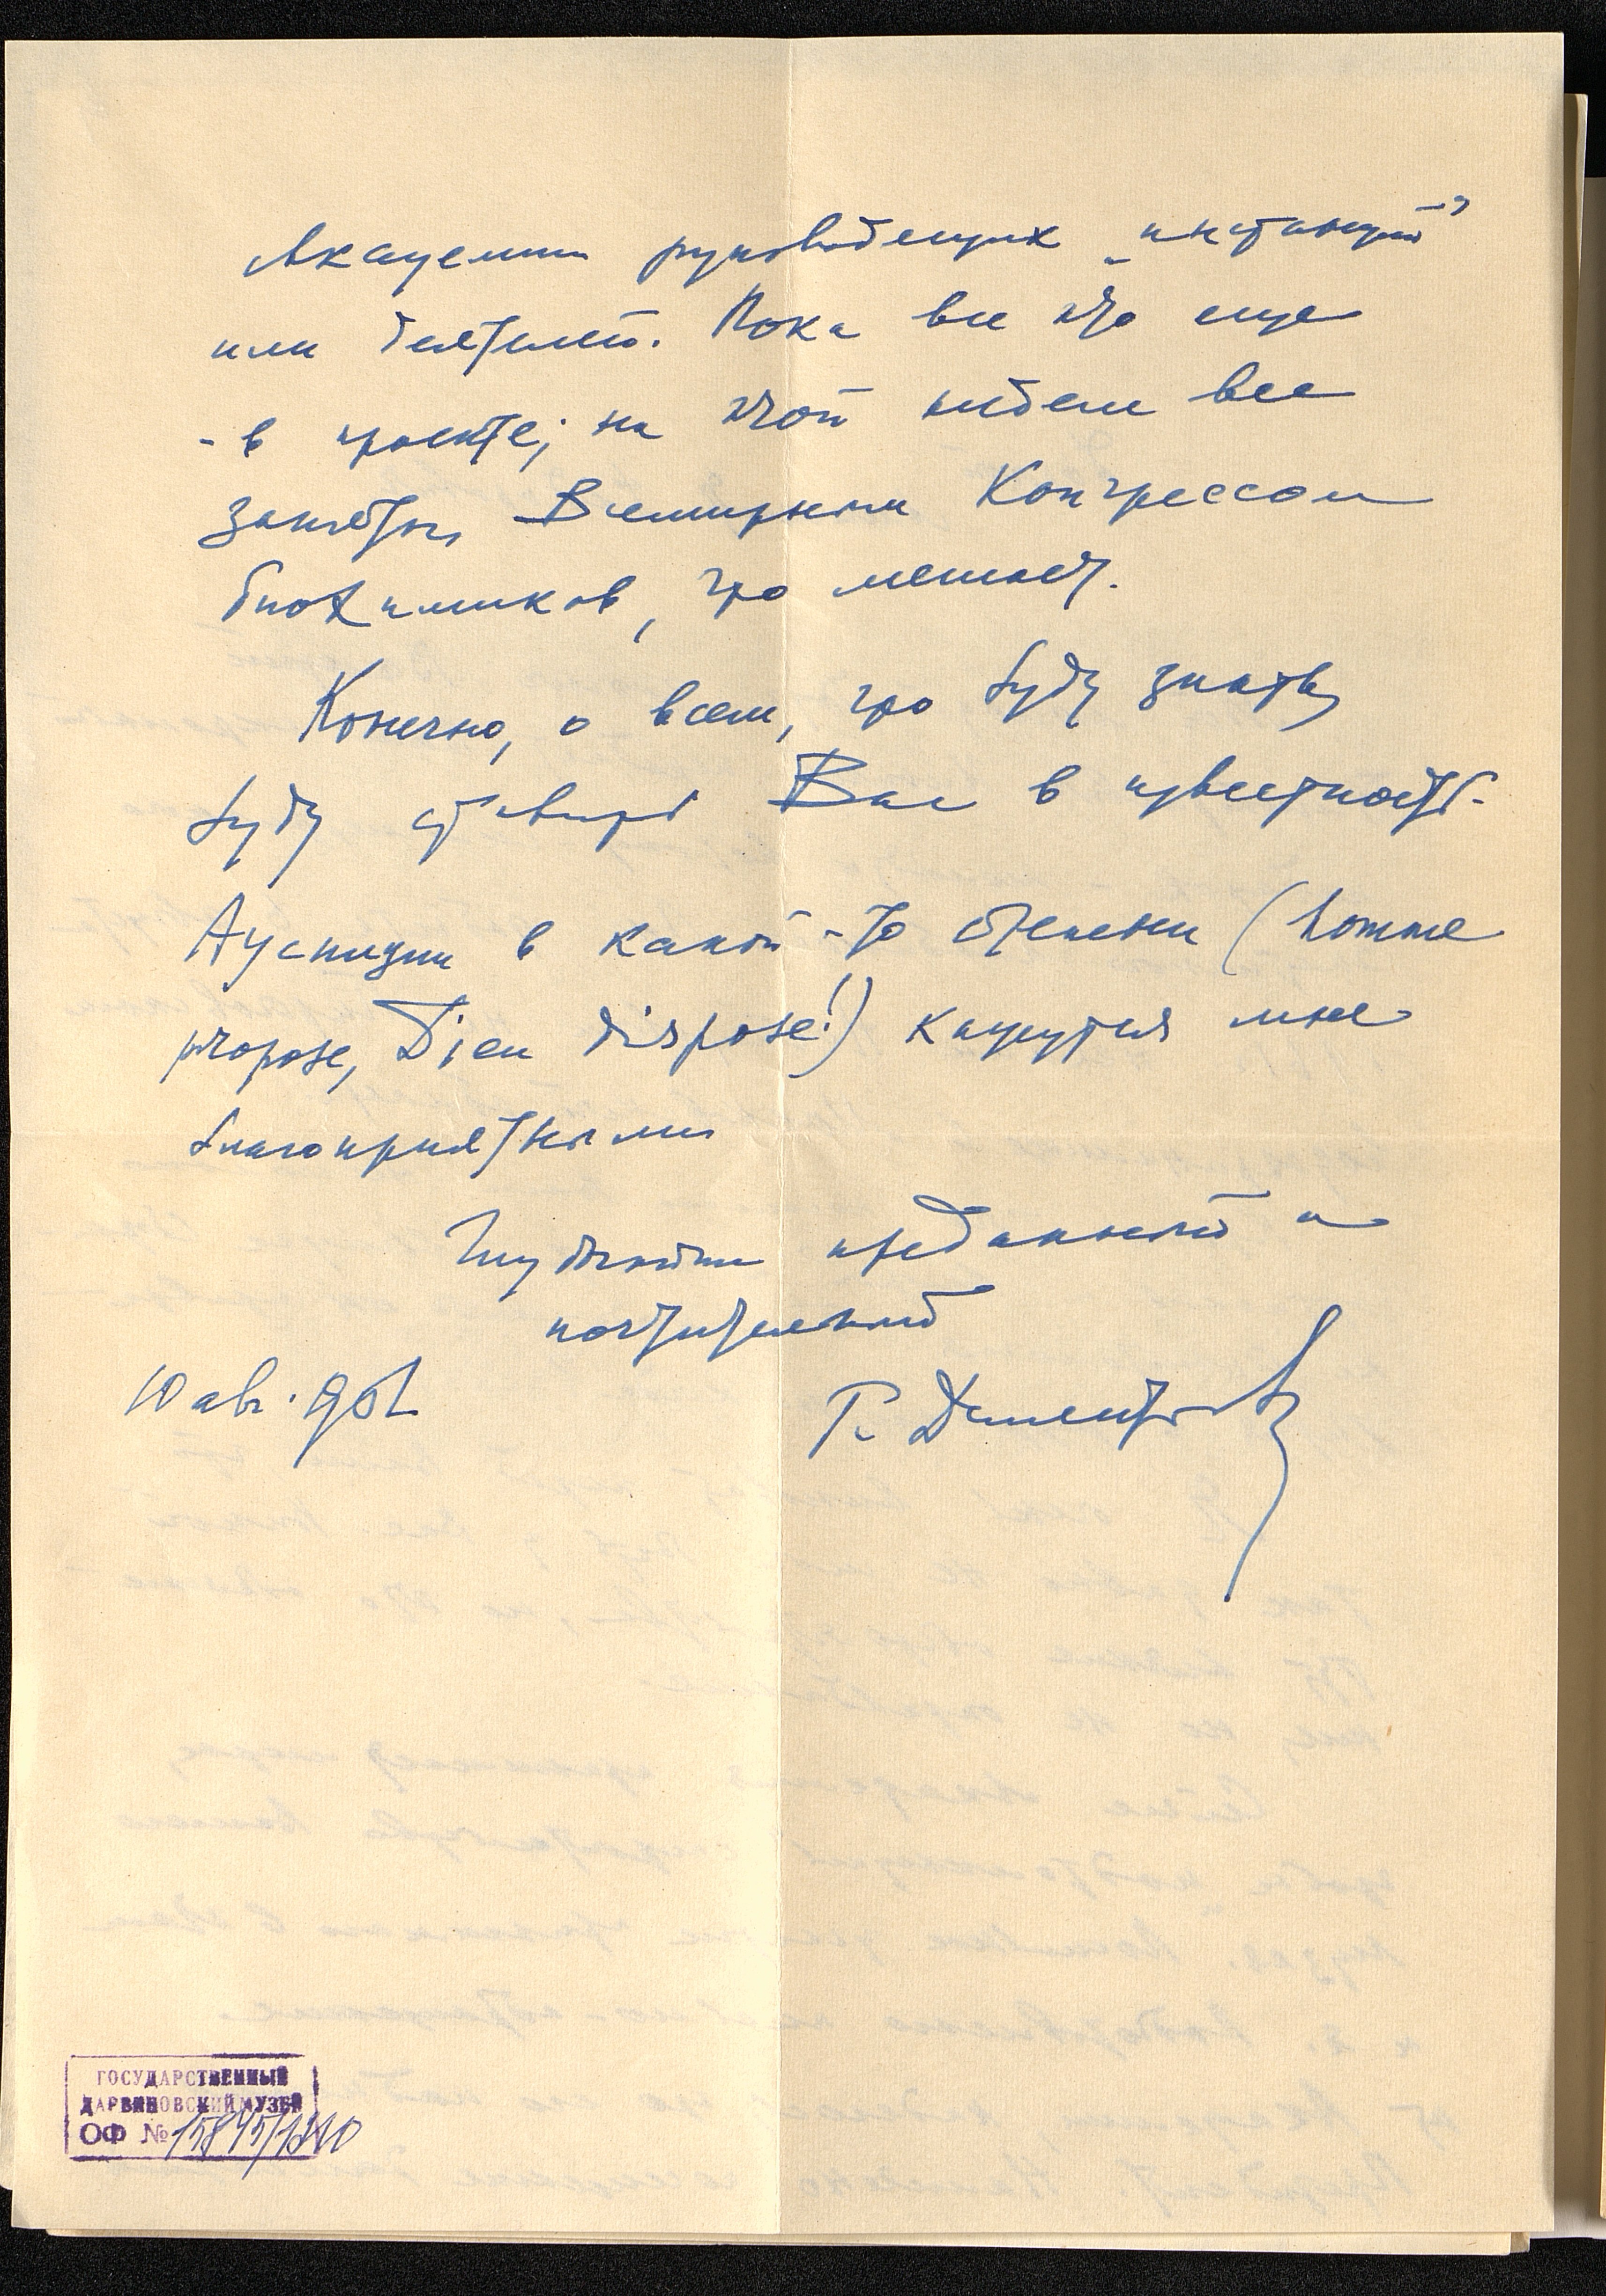 Академии руководящих „инстанций"
или деятелей. Пока все это еще
- в проекте; на этой неделе все
заняты Всемирным Конгрессом
биохимиков, что мешает.
Конечно, о всем, что буду знать,
буду ставить Вас в известность.
Ауспиции в какой-то степени (homme
propose, Dieu dispose!) кажутся мне
благоприятными
Глубоко преданный и
почтительный
10 авг. 961
Г. Дементьев
ГОСУДАРСТВЕННЫЙ
ДАРВИНОВСКИЙ МУЗЕЙ
ОФ №